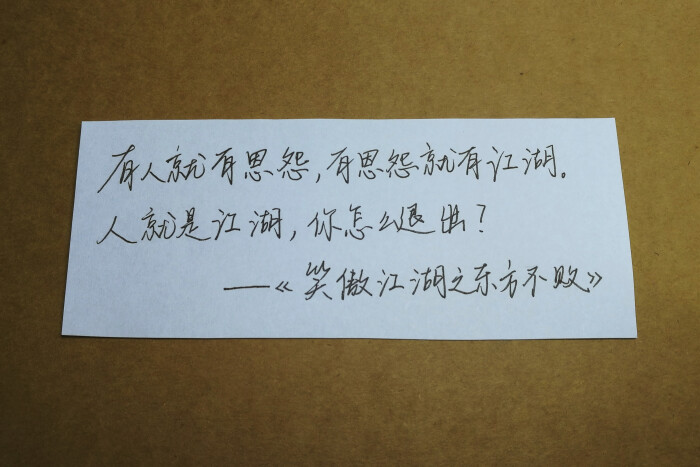 有人就有恩怨,有恩怨就有江湖。
人就是江湖,你怎么退出?
——《笑傲江湖之东方不败》